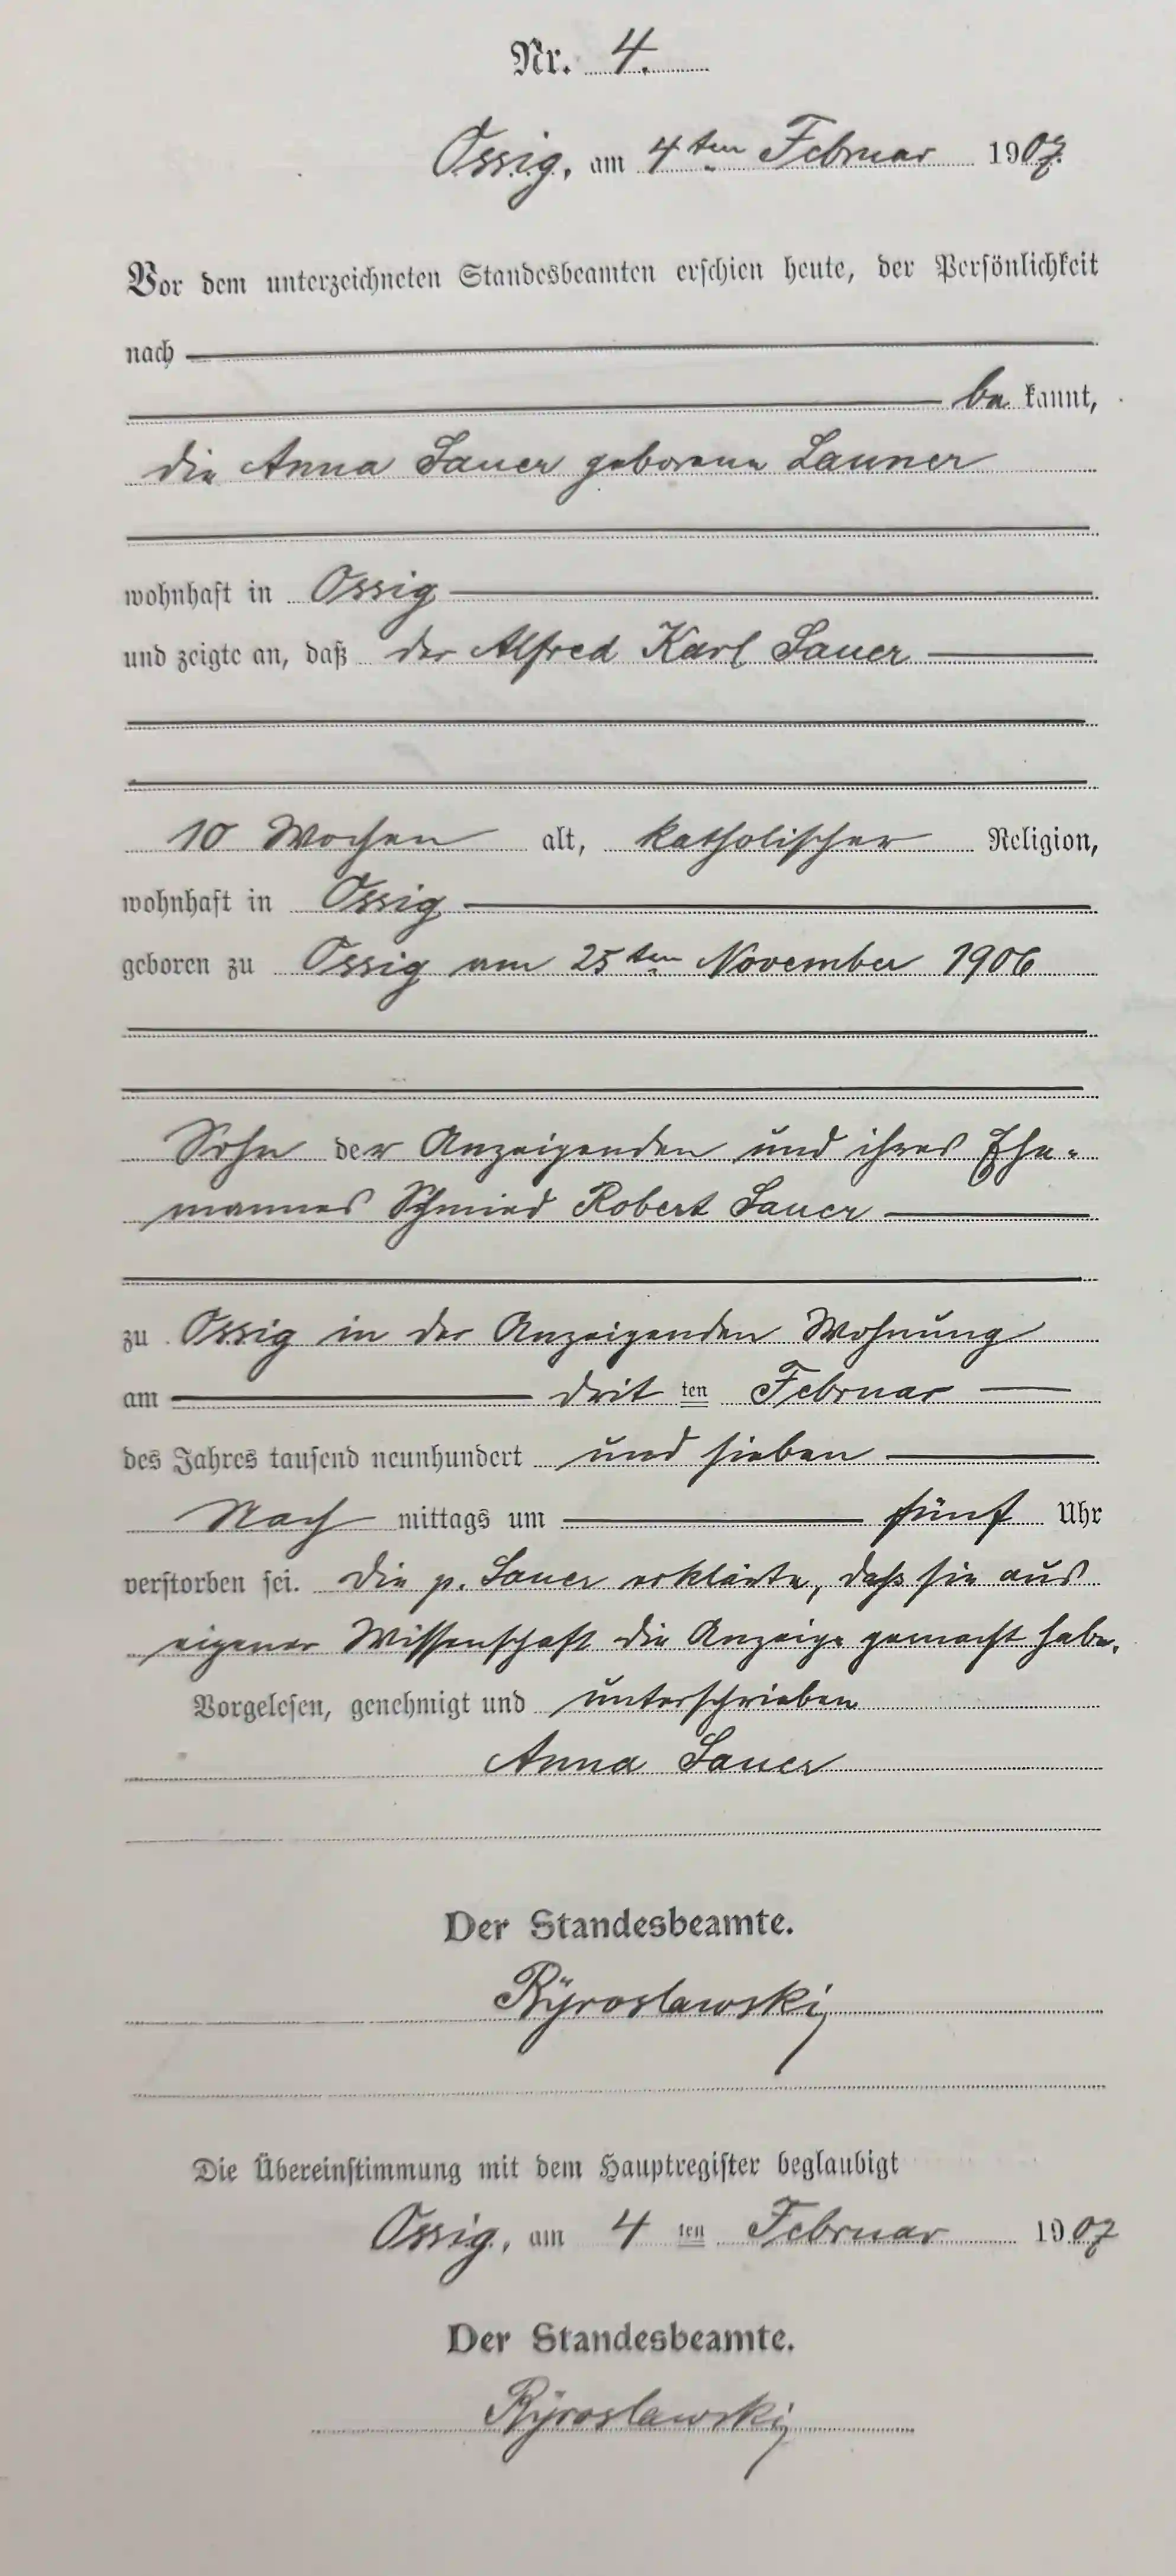 Nr. 4.
Ossig, am 4ten Februar 1907.
Vor dem unterzeichneten Standesbeamten erschien heute, der Persönlichkeit
nach
be kannt,
die Anna Sauer geborene Launer
wohnhaft in Ossig
und zeigte an, daß der Alfred Karl Sauer
10 Wochen alt, katholischer Religion,
wohnhaft in Ossig
geboren zu Ossig am 25ten November 1906
Sohn der Anzeigenden und ihres Ehe-
mannes Schmied Robert Sauer
zu Ossig in der Anzeigenden Wohnung
am drit ten Februar
des Jahres tausend neunhundert und sieben
Nach mittags um fünf Uhr
verstorben sei. Die p. Sauer erklärte, daß sie aus
eigener Wissenschaft die Anzeige gemacht habe.
Vorgelesen, genehmigt und unterschrieben
Anna Sauer
Der Standesbeamte.
Die Übereinstimmung mit dem Hauptregister beglaubigt
Ossig, am 4 ten Februar 1907
Der Standesbeamte.